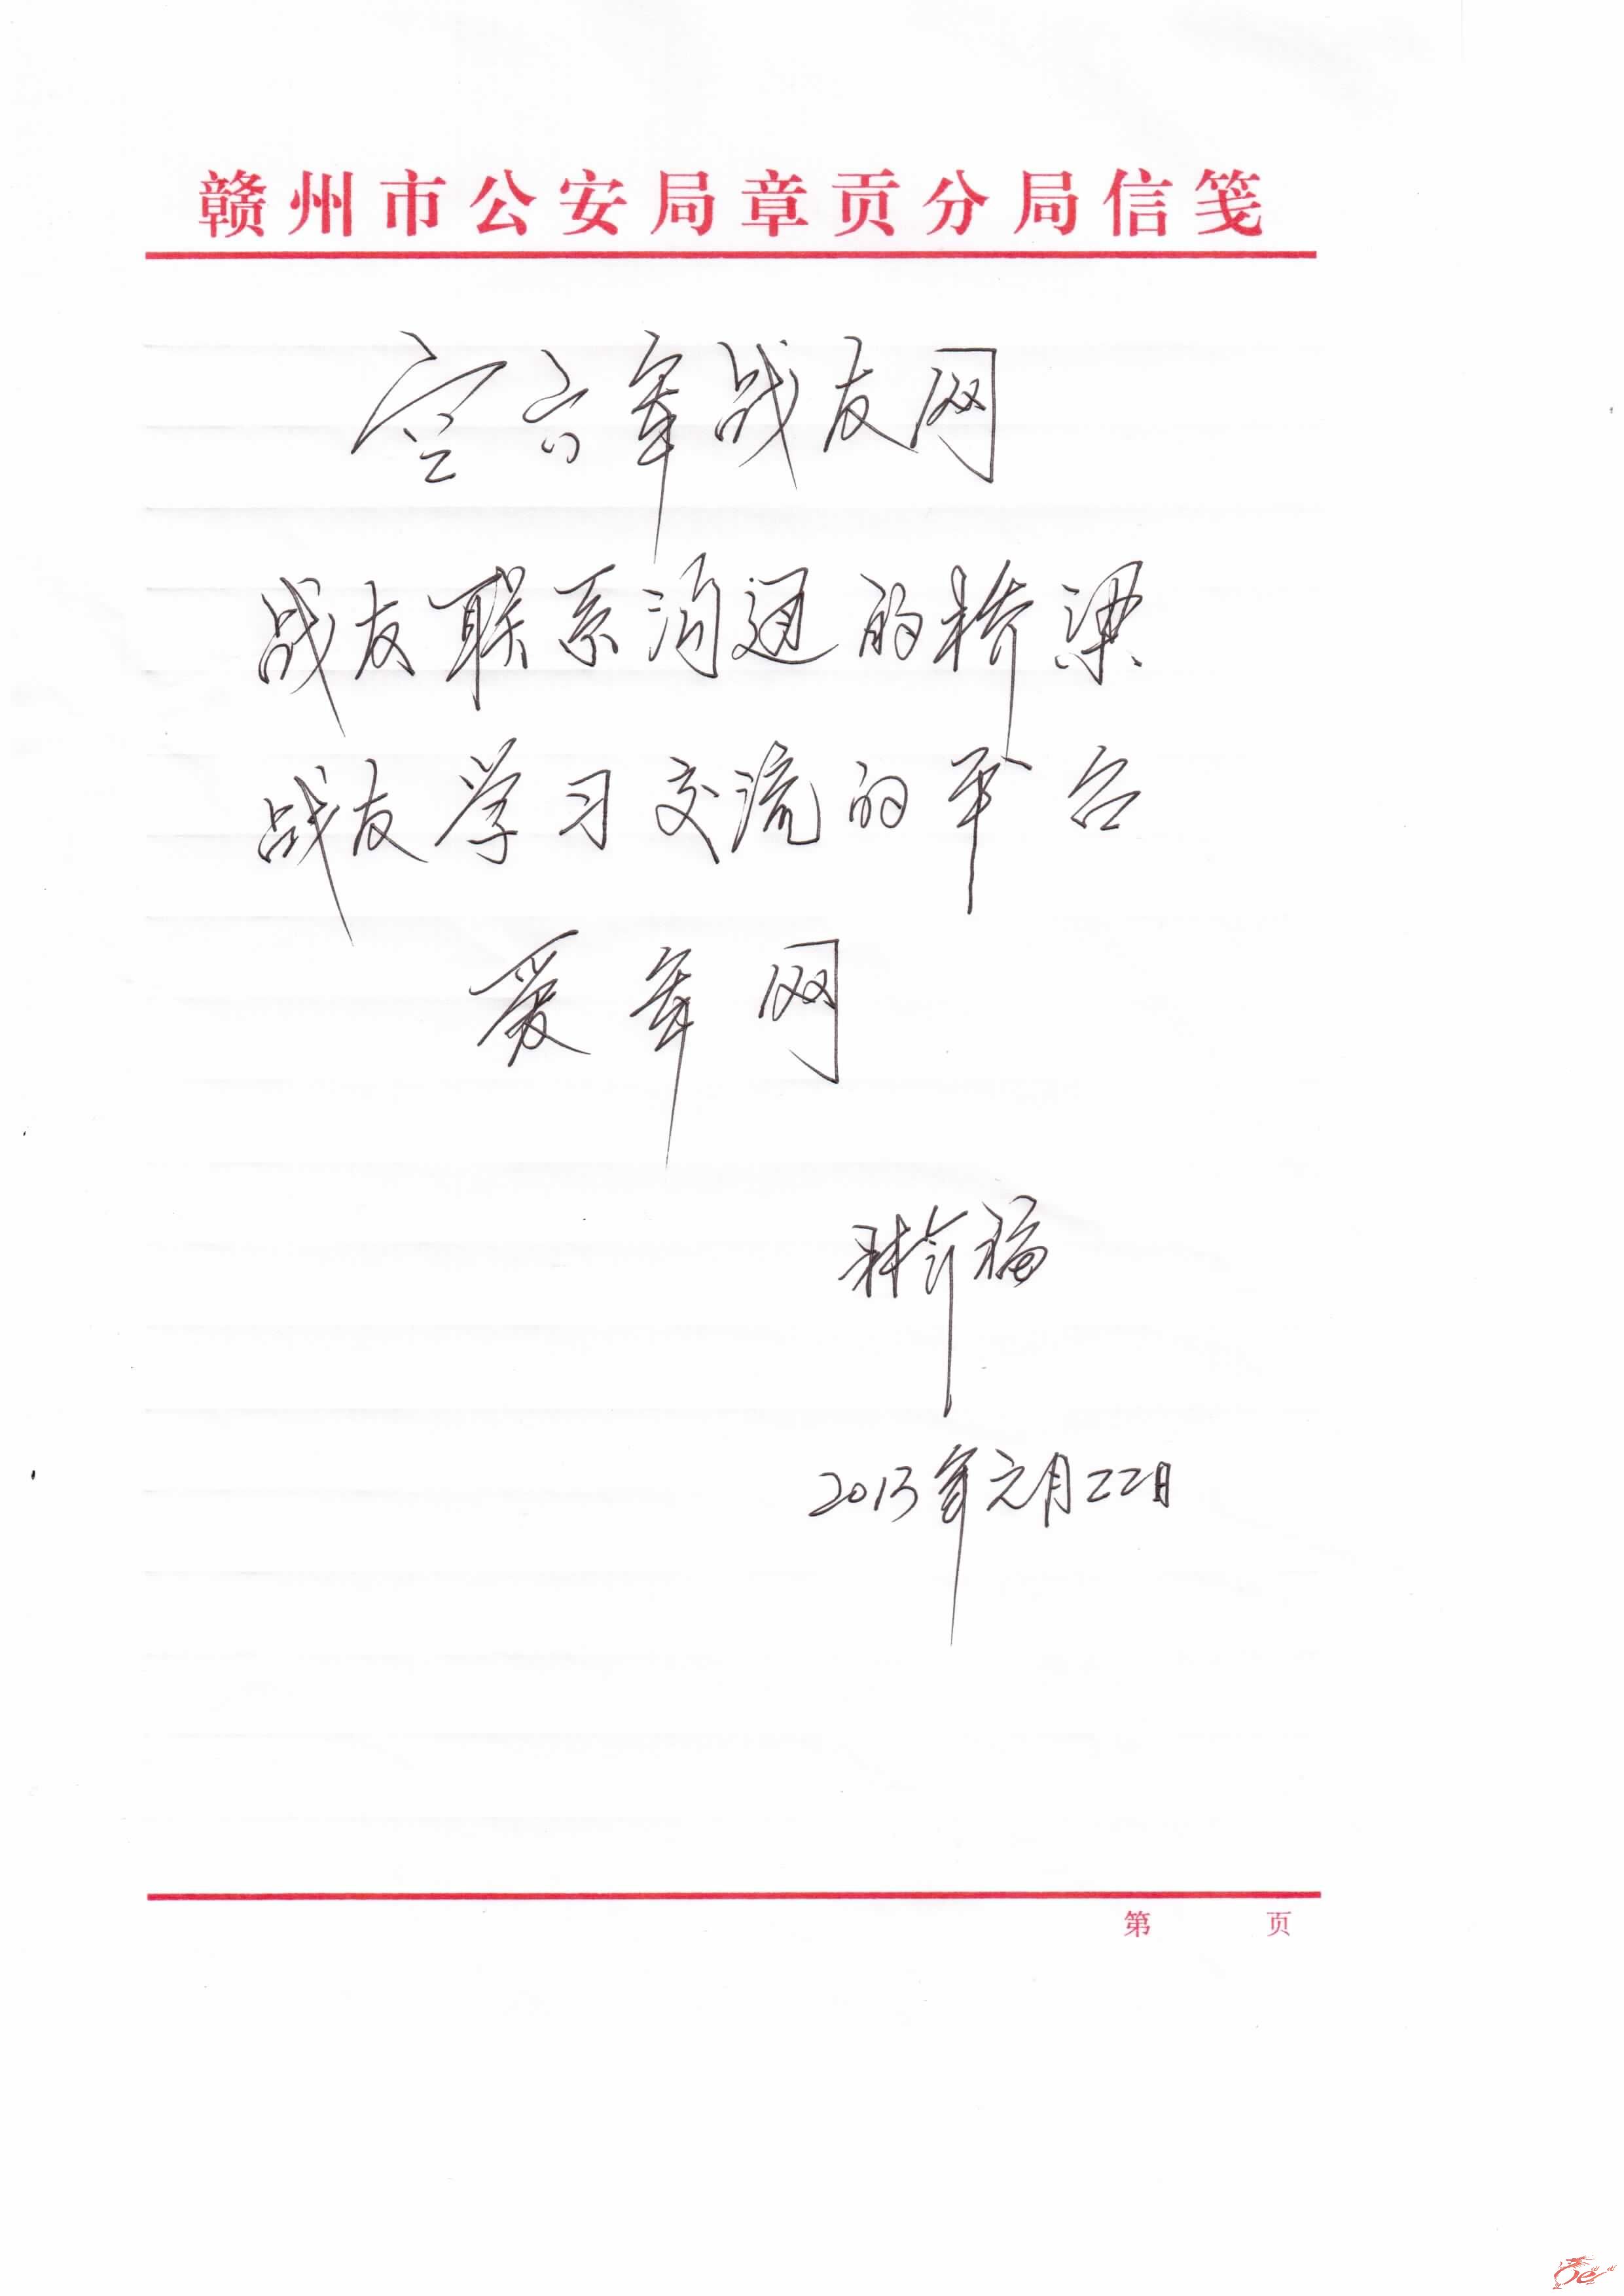 赣州市公安局章贡分局信笺
空六军战友网
战友联系沟通的桥梁
战友学习交流的平台
爱军网
林介福
2013年元月二二日
第 页